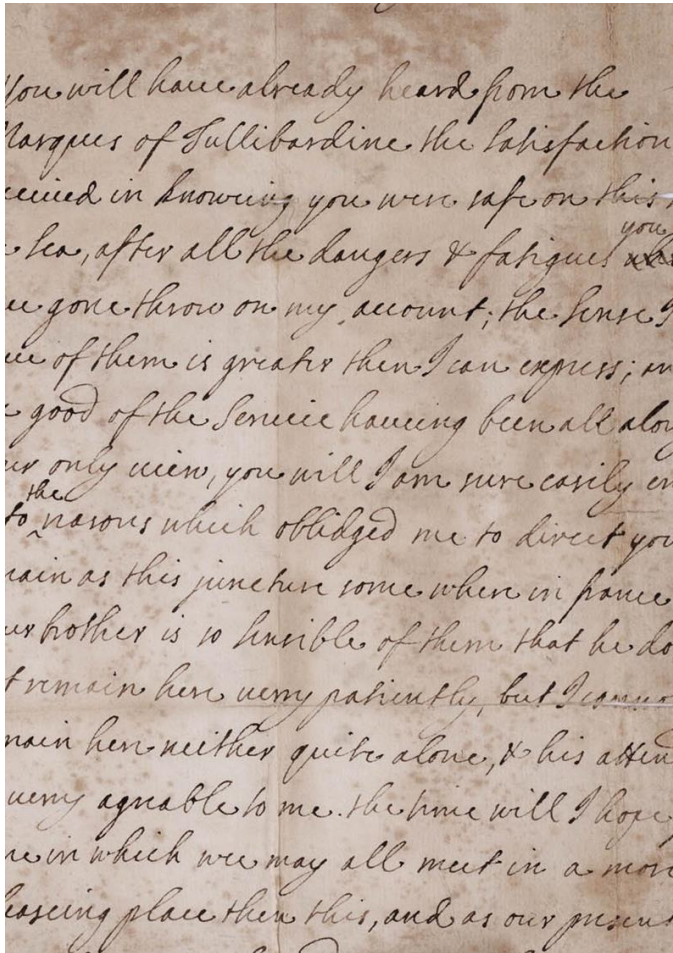 You will have already heard from the
Marques of Tullibardine the Satisfaction
ceived in knoweing you were safe on this
Sea, after all the dangers & fatigues you
ve gone throw on my account; the Sense I
ve of them is greater then I can express; an
good of the Service haveing been all alon
ur only view, you will I am sure easily en
to the reasons which oblidged me to direct you
main as this juncture some where in france
ur brother is so sensible of them that he do
t remain here verry patiently, but I canno
main here neither quite alone, & his atten
verry agreable to me. the time will I hope
me in which wee may all meet in a more
leaseing place then this, and as our presen